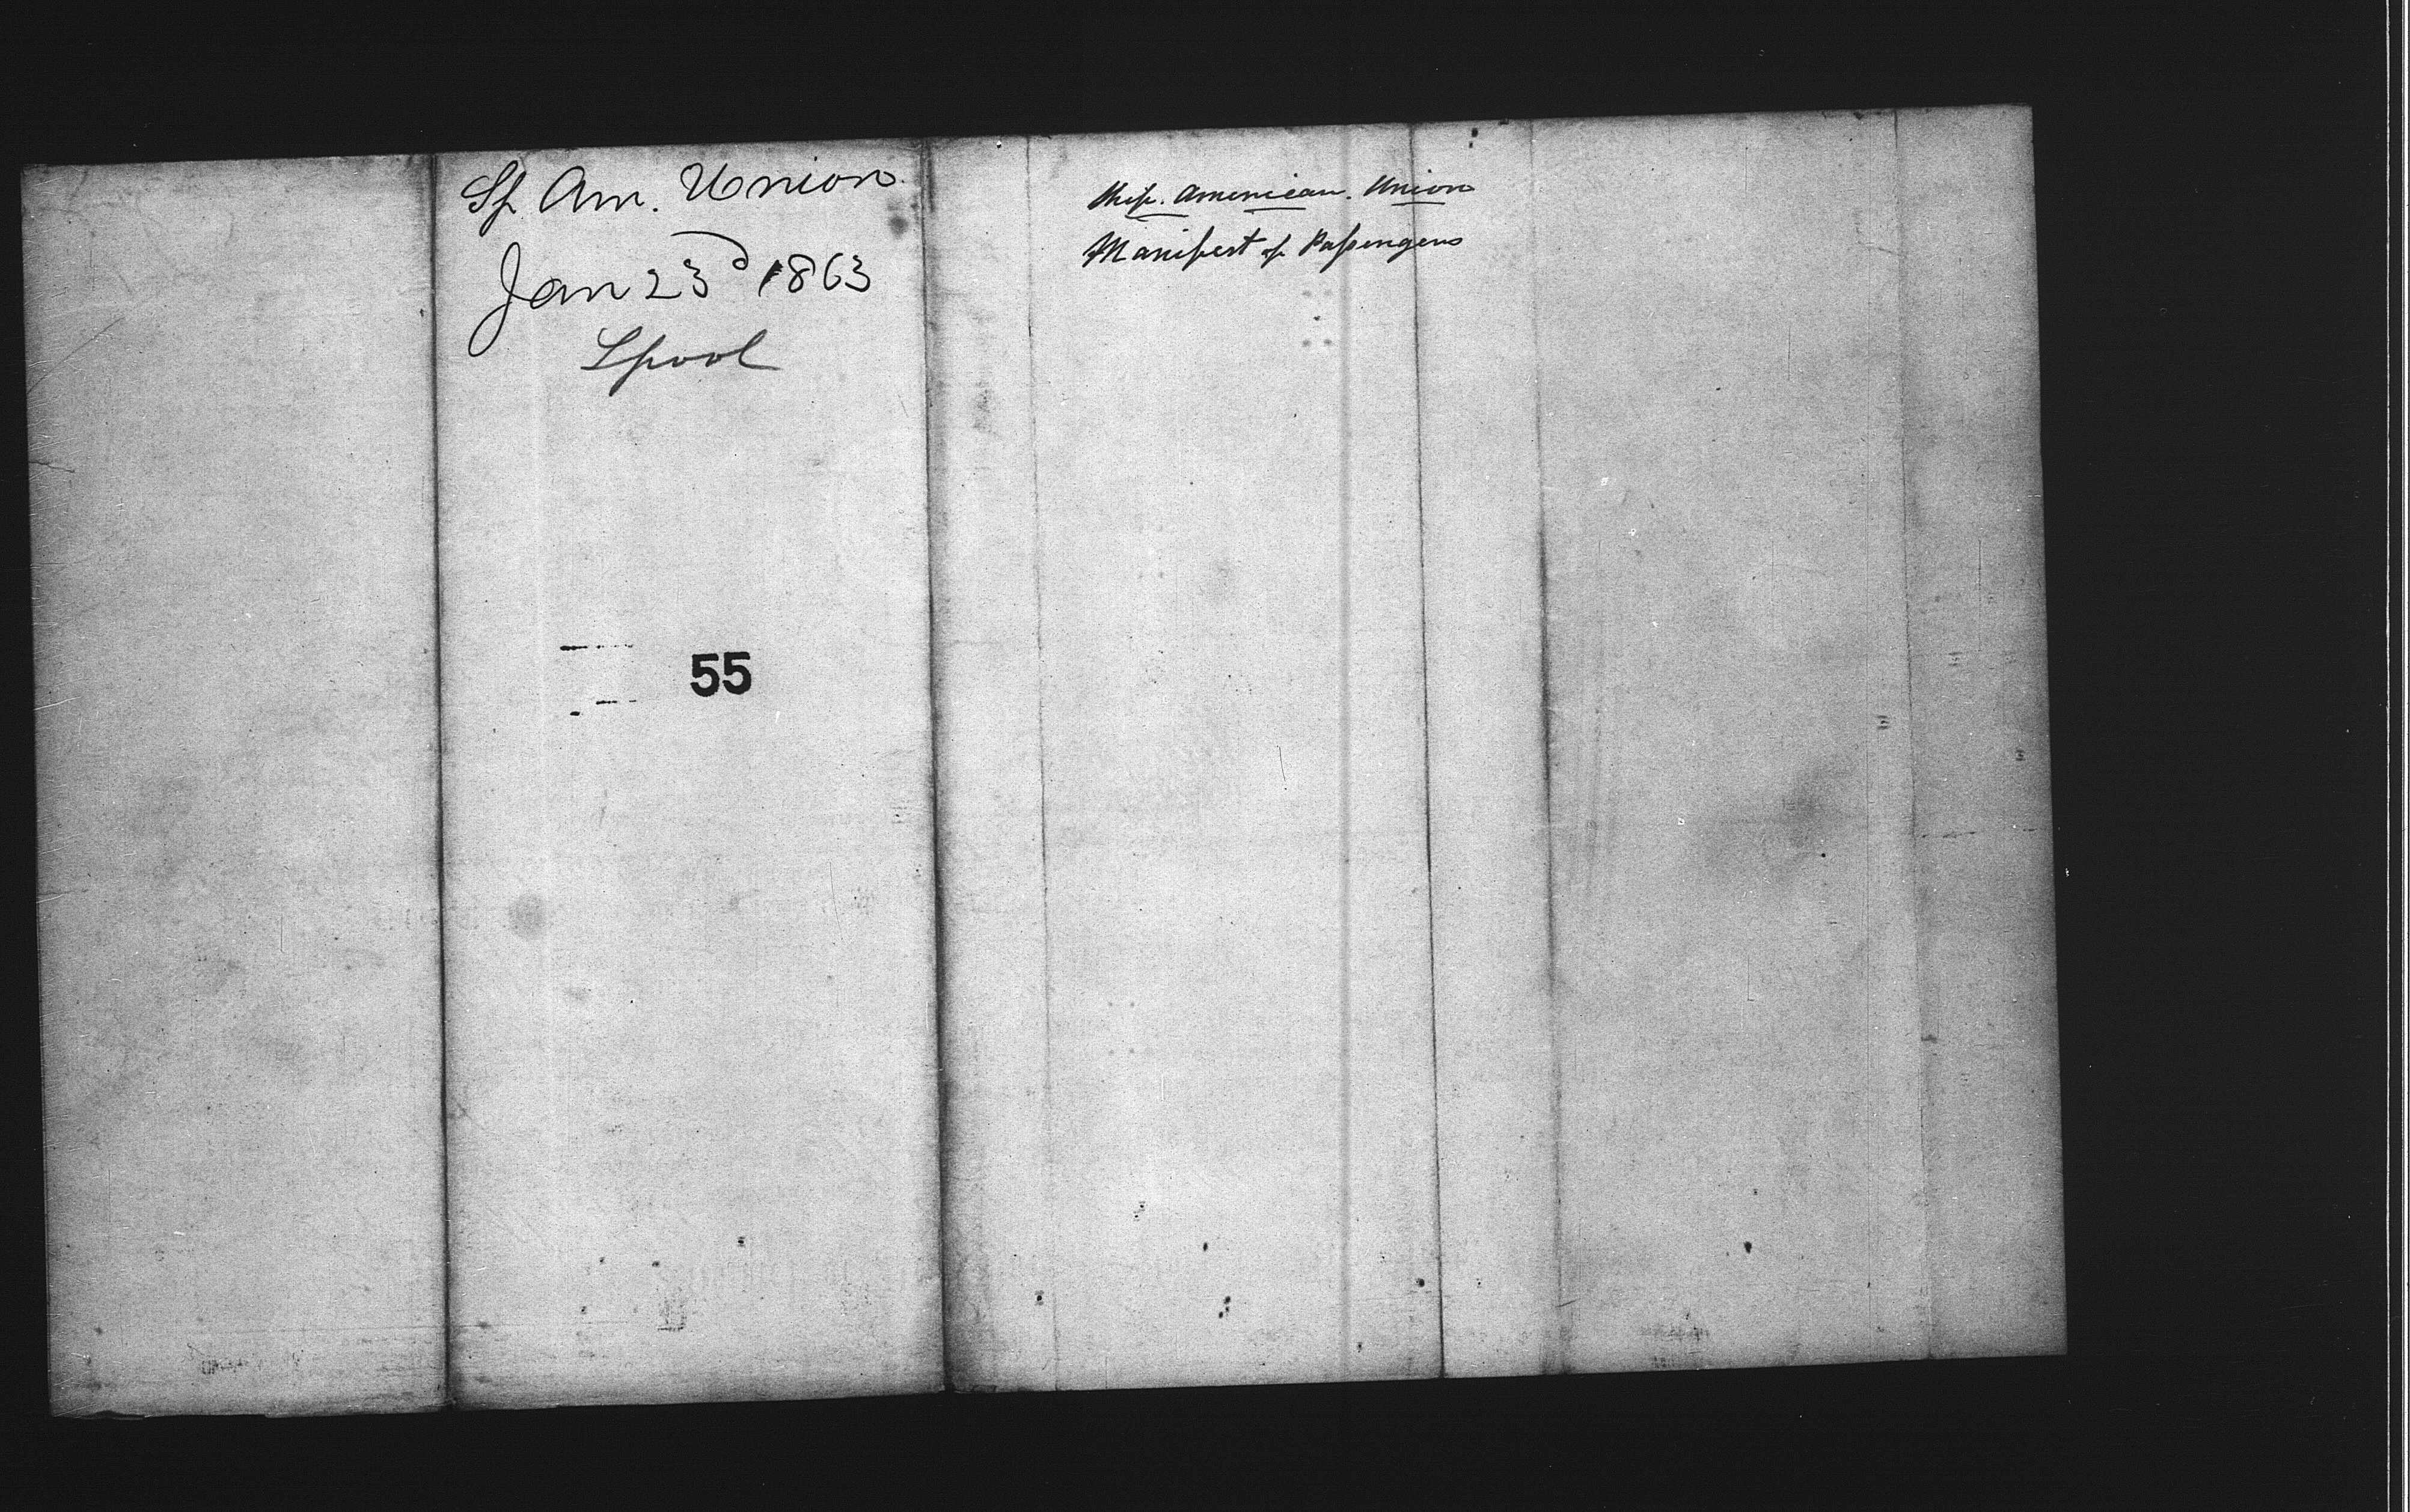 Sp. Am. Union
Jan 23d 1863
Lpool
55
Ship. American. Union
Manifest of Passengers